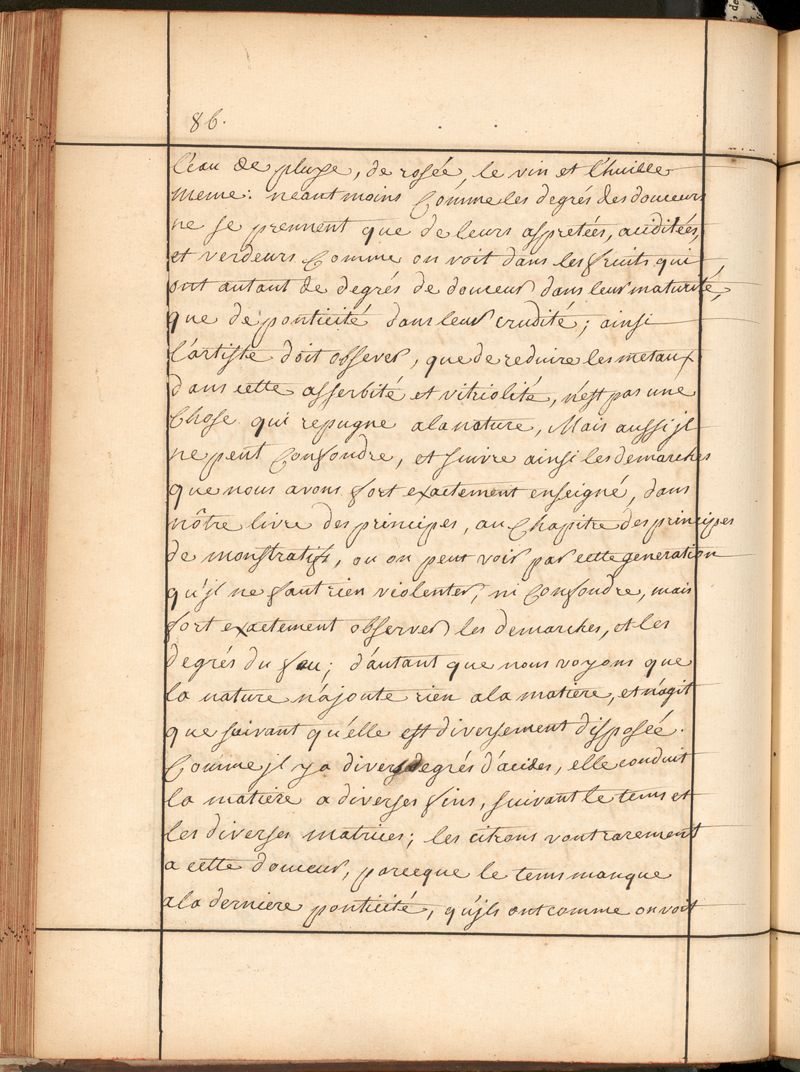 86.
l'eau de pluye, de rosée, le vin et l'huille
meme: néantmoins Comme les degrés des douceurs
ne se prennent que de leurs aspretées, aciditées,
et verdeurs Comme on voit dans les fruits qui
ont autant de degrés de douceur dans leur maturité,
que de ponticité dans leur crudité; ainsi
l'artiste doit observer, que de reduire les metaux
dans cette asserbité et vitriolité, n'est pas une
Chose qui repugne a la nature, Mais aussi jl
ne peut Confondre, et suivre ainsi les demarches
que nous avons fort exactement enseigné, dans
nôtre livre des principes, au Chapitre des principes
de monstratifs, ou on peut voir par cette generation
qu'jl ne faut rien violenter, ni Confondre, mais
fort exactement observer les demarches, et les
degrés du feu; d'autant que nous voyons que
la nature n'ajoute rien a la matiere, et n'agit
que suivant qu'elle est diversement disposée.
Comme jl y a divers degrés d'acides, elle conduit
la matiere a diverses fins, suivant le tems et
les diverses matrices; les citrons vont rarement
a cette douceur, parceque le tems manque
a la derniere ponticité, qu'jls ont comme on voit